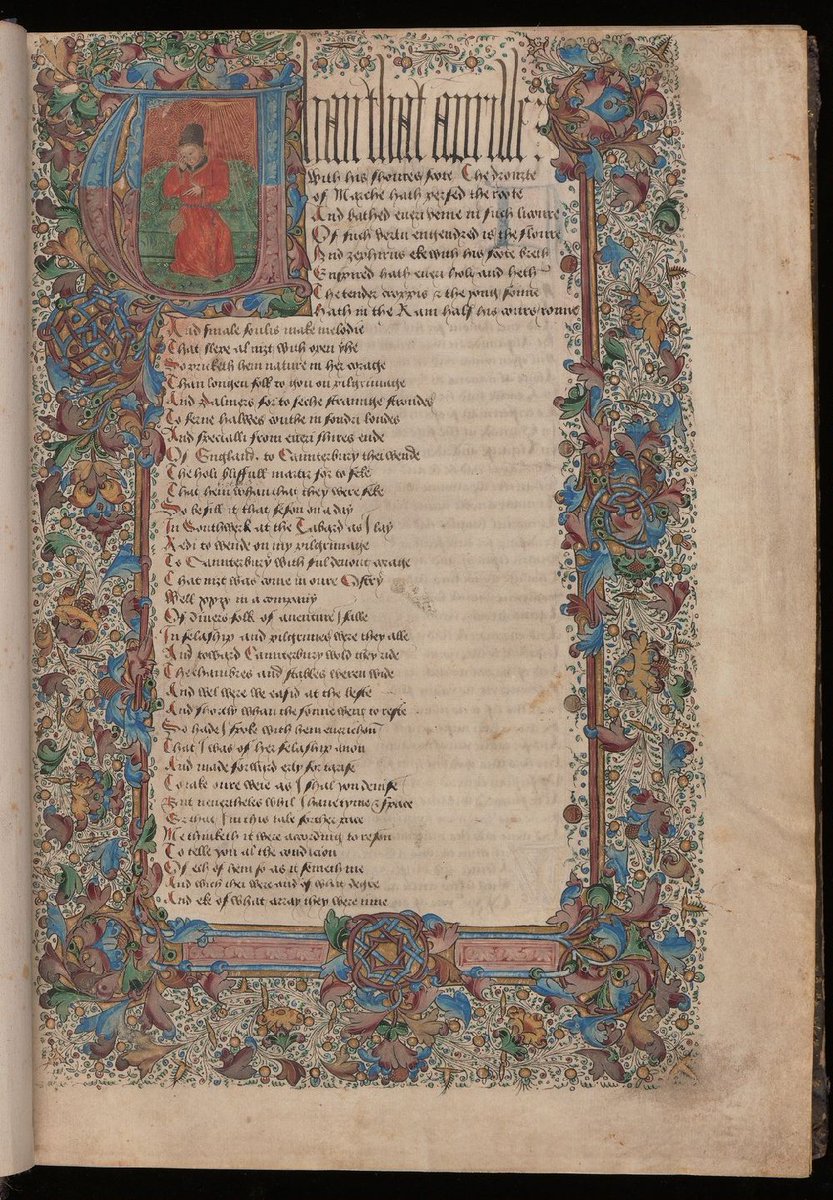 Whan that aprille
With his shoures soote The drouzte
of Marche hath persed the roote
And bathed eueri veyne in such licoure
Of such vertu engendred is the floure
And zephirus eke with his soote breth
Enspired hath eueri holt and heth
The tender croppis & the yong sonne
Hath in the Ram half his cours ronne
And smale foulis make melodie
That slepe al nizt with open yhe
So priketh hem nature in her corage
Than longen folk to gon on pilgrimage
And Palmers for to seche straunge strondes
To ferne halwes couthe in sondri londes
And specialli from eueri shires ende
Of England, to Caunterbury thei wende
The holi blisfull martir for to seke
That hem whan that they were seke
So befill it that seson on a day
In Southwerk at the Tabard as I lay
Redi to wende on my pilgrimage
To Caunterbury with ful deuout corage
That nizt was come in oure Ostry
Well xxix in a company
Of diuers folk of auenture I falle
In felaship and pilgrimes were they alle
And toward Caunterbury wold they ride
The chambres and stables weren wide
And wel were we easid at the beste
And shortly whan the sonne went to reste
So hade I spoke with hem euerichon
That I was of her felaship anon
And made forward erly for tarise
To take oure weie as I shal you deuise
But neuertheles whil I haue tyme & space
Er that I in this tale forther pace
Me thinketh it were according to reson
To telle you al the condicion
Of ech of hem so as it semeth me
And wich thei were and of what degre
And eke of what array they were inne